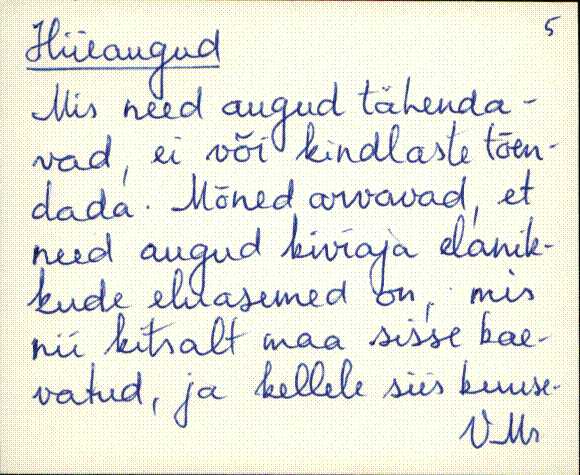 5
Hiieaugud
Mis need augud tähenda-
vad, ei või kindlaste tõen-
dada. Mõned arvavad, et
need augud kiviaja elanik-
kude eluasemed on, mis
nii kitsalt maa sisse kae-
vatud, ja kellele siis kuuse-
V Mr